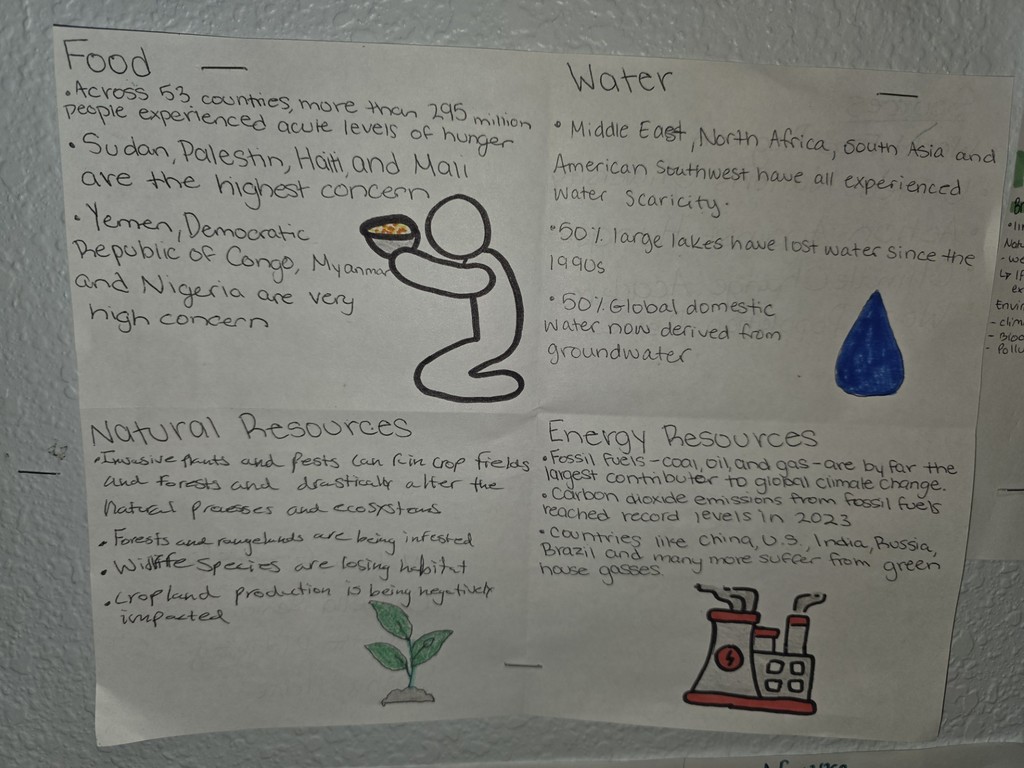 Food
• Across 53 countries, more than 295 million
people experienced acute levels of hunger
• Sudan, Palestin, Haiti, and Mali
are the highest concern
• Yemen, Democratic
Republic of Congo, Myanmar
and Nigeria are very
high concern
Water
• Middle East, North Africa, South Asia and
American Southwest have all experienced
water scaricity.
• 50% large lakes have lost water since the
1990s
• 50% Global domestic
water now derived from
groundwater
Natural Resources
• Invasive plants and Pests can in crop fields
and forests and drastically alter the
natural processes and ecosystems
• Forests and rangelands are being infested
• Wildlife Species are losing habitat
• Cropland production is being negatively
impacted
Energy Resources
• Fossil fuels - coal, oil, and gas - are by far the
largest contributer to global climate change.
• Carbon dioxide emissions from fossil fuels
reached record levels in 2023
• Countries like China, U.S., India, Russia,
Brazil and many more suffer from green
house gasses.